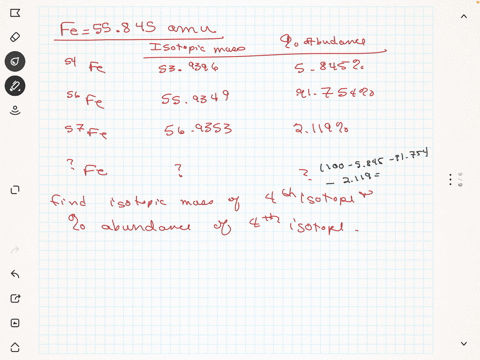 Fe = 55.845 amu
Isotopic mass % Abundance
54 Fe 53.9396 5.845%
56 Fe 55.9349 91.754%
57 Fe 56.9353 2.119%
? Fe ? ? (100 - 5.845 - 91.754
- 2.119 =
find isotopic mass of 4th isotope +
% abundance of 4th isotope.